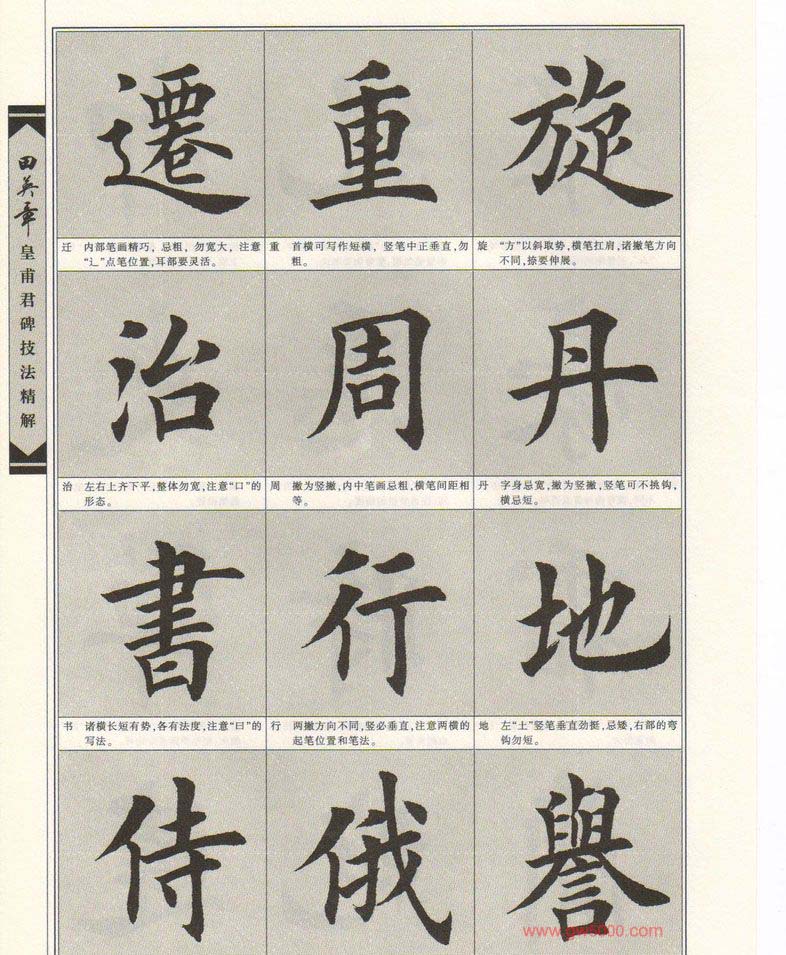 田英章
皇甫君碑技法精解
遷
重
旋
迁 内部笔画精巧，忌粗，勿宽大，注意
“辶”点笔位置，耳部要灵活。
重 首横可写作短横，竖笔中正垂直，勿
粗。
旋 “方”以斜取势，横笔扛肩，诸撇笔方向
不同，捺要伸展。
治
周
丹
治 左右上齐下平，整体勿宽，注意“口”的
形态。
周 撇为竖撇，内中笔画忌粗，横笔间距相
等。
丹 字身忌宽，撇为竖撇，竖笔可不挑钩，
横忌短。
書
行
地
书 诸横长短有势，各有法度，注意“曰”的
写法。
行 两撇方向不同，竖必垂直，注意两横的
起笔位置和笔法。
地 左“土”竖笔垂直劲挺，忌矮，右部的弯
钩勿短。
侍
俄
譽